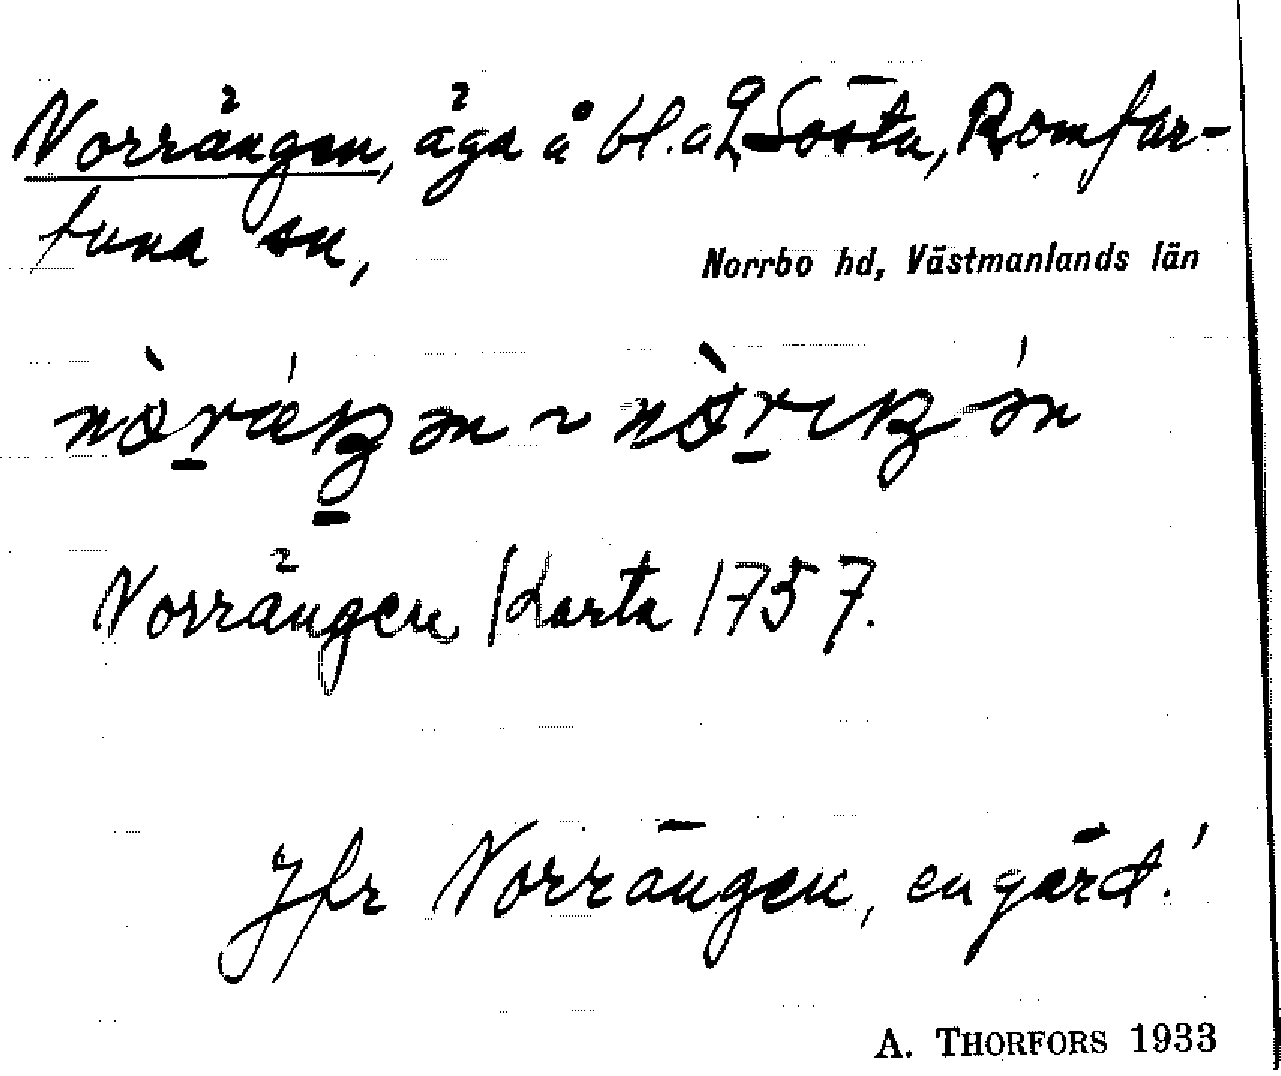 Norrängen, äga å bl.a. Sösta, Romfar-
tuna sn,
Norrbo hd, Västmanlands län
Norrängen Karta 1757.
Jfr Norrängen, en gård!
A. THORFORS 1933